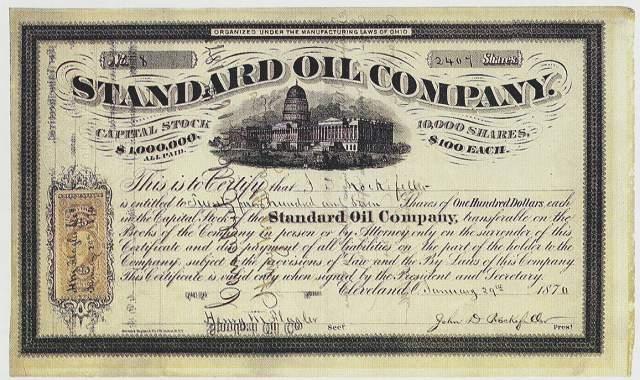 ORGANIZED UNDER THE MANUFACTURING LAWS OF OHIO
No. 8
2407 Shares
STANDARD OIL COMPANY.
CAPITAL STOCK
10,000 SHARES,
$1,000,000.
$100 EACH.
ALL PAID.
This is to Certify that J. D. Rockefeller
is entitled to Hundred and Seven Shares of One Hundred Dollars each
in the Capital Stock of the Standard Oil Company, transferable on the
Books of the Company in person or by Attorney only on the surrender of this
Certificate and the payment of all liabilities on the part of the holder to the
Company, subject to the provisions of Law and the By Laws of this Company
This Certificate is valid only when signed by the President and Secretary.
Cleveland, O. January 29th 1870
Henry M. Flagler Secy
John D Rockefeller Prest